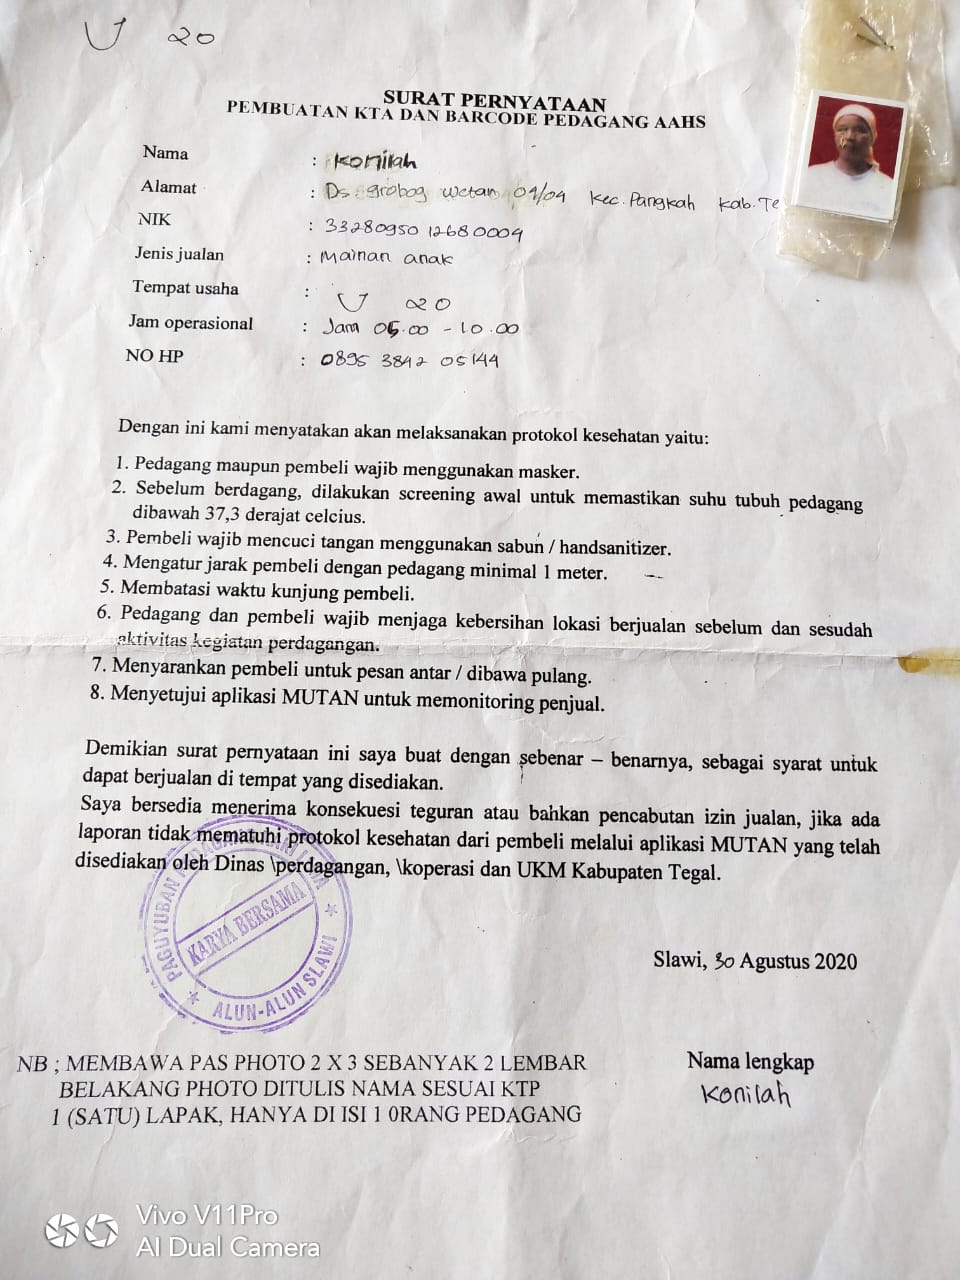 U 20
SURAT PERNYATAAN
PEMBUATAN KTA DAN BARCODE PEDAGANG AAHS
Nama : Konilah
Alamat : Ds. grobog wetan 04/04 Kec. Pangkah Kab. Te
NIK : 3328095012680004
Jenis jualan : Mainan anak
Tempat usaha : U 20
Jam operasional : Jam 05.00 - 10.00
NO HP : 0895 3842 05144
Dengan ini kami menyatakan akan melaksanakan protokol kesehatan yaitu:
1. Pedagang maupun pembeli wajib menggunakan masker.
2. Sebelum berdagang, dilakukan screening awal untuk memastikan suhu tubuh pedagang
dibawah 37,3 derajat celcius.
3. Pembeli wajib mencuci tangan menggunakan sabun / handsanitizer.
4. Mengatur jarak pembeli dengan pedagang minimal 1 meter.
5. Membatasi waktu kunjung pembeli.
6. Pedagang dan pembeli wajib menjaga kebersihan lokasi berjualan sebelum dan sesudah
aktivitas kegiatan perdagangan.
7. Menyarankan pembeli untuk pesan antar / dibawa pulang.
8. Menyetujui aplikasi MUTAN untuk memonitoring penjual.
Demikian surat pernyataan ini saya buat dengan sebenar – benarnya, sebagai syarat untuk
dapat berjualan di tempat yang disediakan.
Saya bersedia menerima konsekuesi teguran atau bahkan pencabutan izin jualan, jika ada
laporan tidak mematuhi protokol kesehatan dari pembeli melalui aplikasi MUTAN yang telah
disediakan oleh Dinas \perdagangan, \koperasi dan UKM Kabupaten Tegal.
PAGUYUBAN
KARYA BERSAMA
ALUN-ALUN SLAWI
Slawi, 30 Agustus 2020
NB ; MEMBAWA PAS PHOTO 2 X 3 SEBANYAK 2 LEMBAR
BELAKANG PHOTO DITULIS NAMA SESUAI KTP
1 (SATU) LAPAK, HANYA DI ISI 1 0RANG PEDAGANG
Nama lengkap
Konilah
Vivo V11Pro
AI Dual Camera